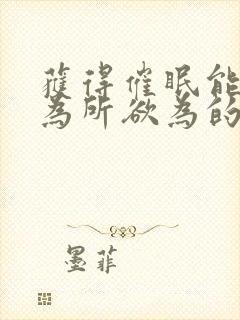 獲得催眠能
為所欲為的
墨菲